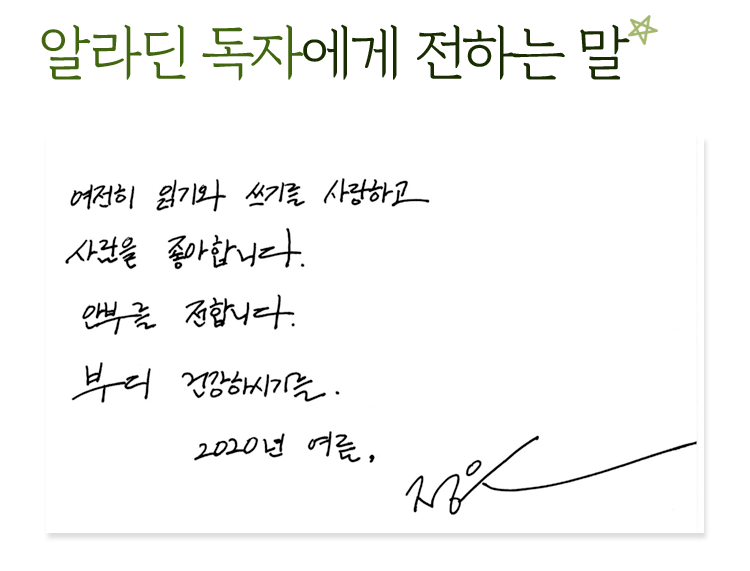 알라딘 독자에게 전하는 말
여전히 읽기와 쓰기를 사랑하고
사람을 좋아합니다.
안부를 전합니다.
부디 건강하시기를.
2020년 여름,